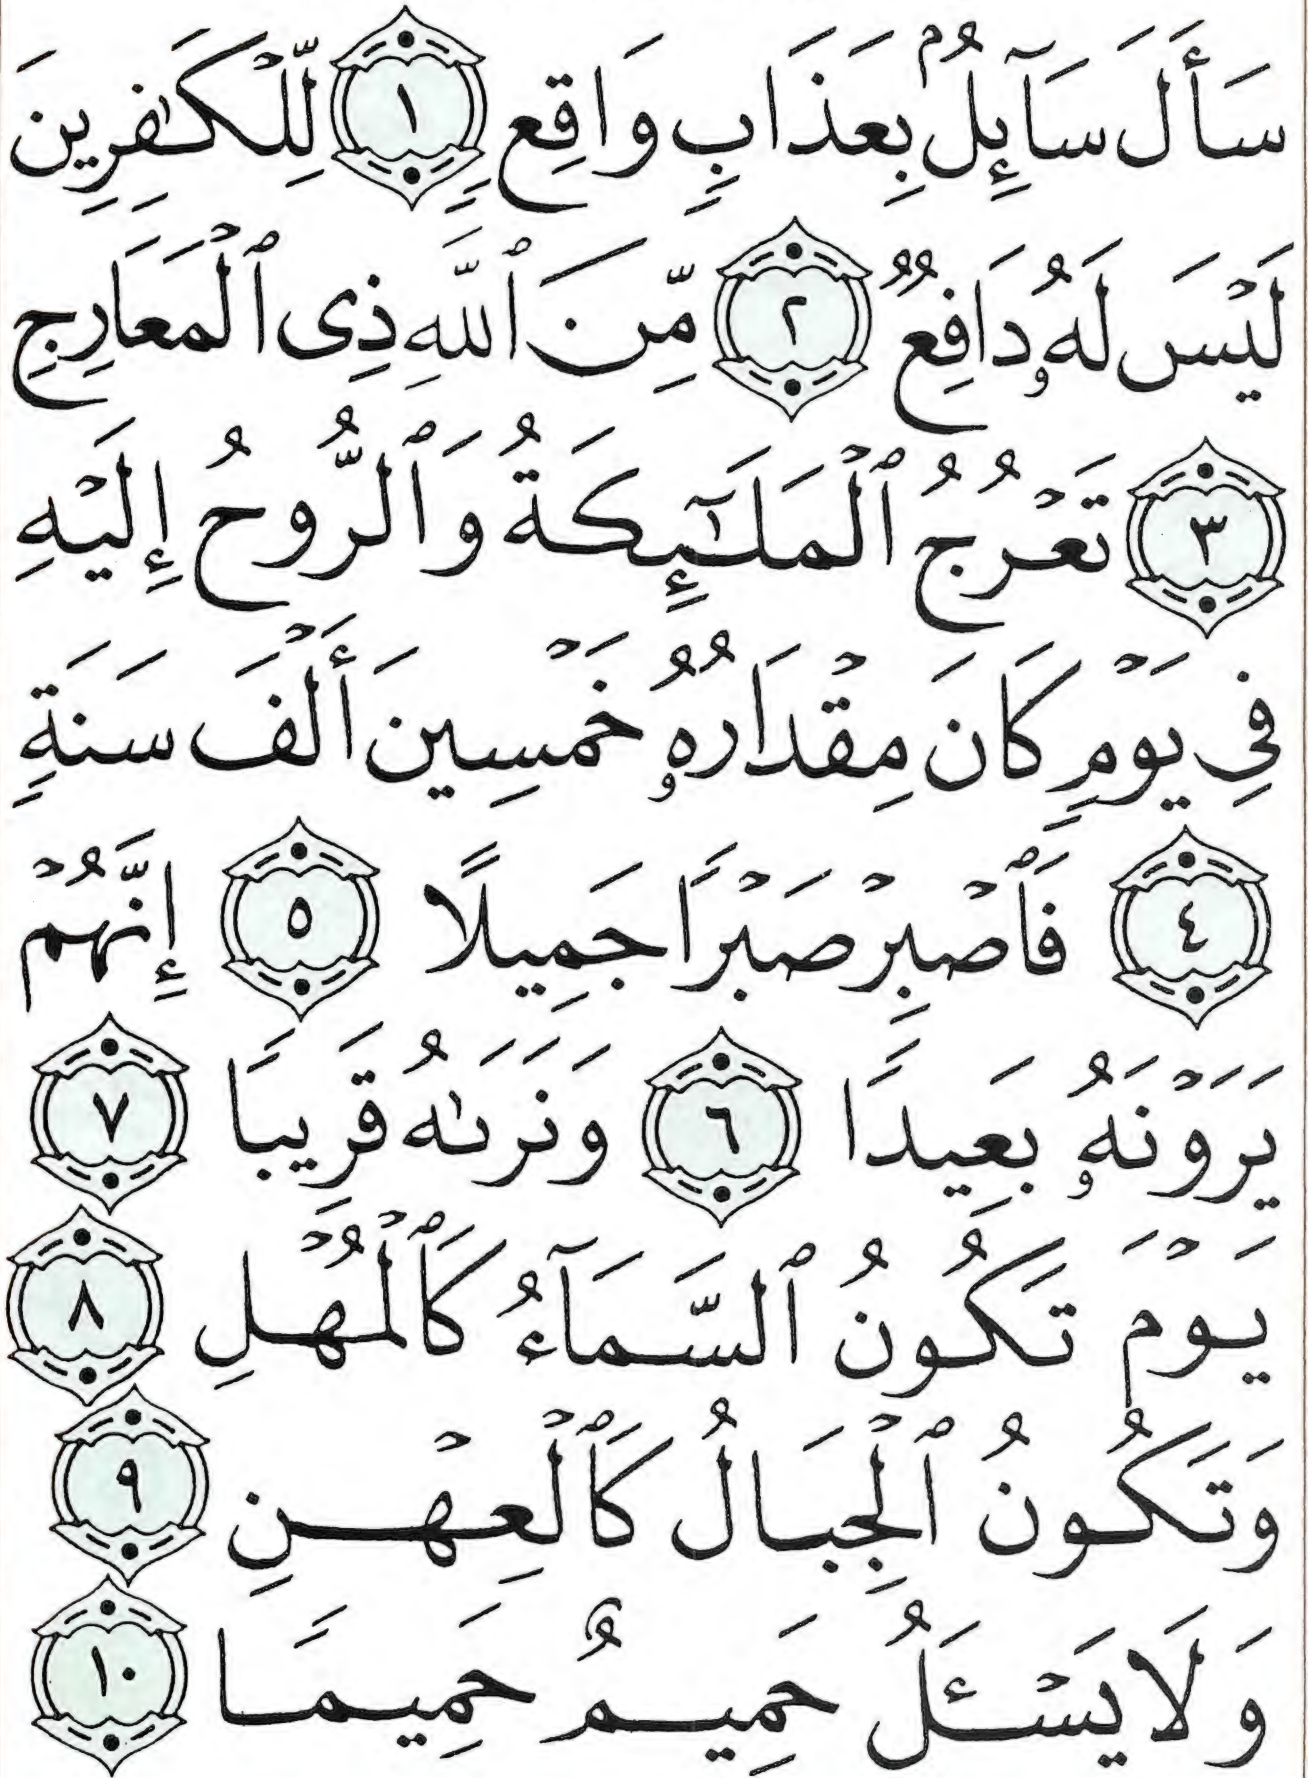 سَأَلَ سَآئِلُۢ بِعَذَابٖ وَاقِعٖ ١ لِّلۡكَٰفِرِينَ
لَيۡسَ لَهُۥ دَافِعٞ ٢ مِّنَ ٱللَّهِ ذِي ٱلۡمَعَارِجِ
٣ تَعۡرُجُ ٱلۡمَلَٰٓئِكَةُ وَٱلرُّوحُ إِلَيۡهِ
فِي يَوۡمٖ كَانَ مِقۡدَارُهُۥ خَمۡسِينَ أَلۡفَ سَنَةٖ
٤ فَٱصۡبِرۡ صَبۡرٗا جَمِيلًا ٥ إِنَّهُمۡ
يَرَوۡنَهُۥ بَعِيدٗا ٦ وَنَرَىٰهُ قَرِيبٗا ٧
يَوۡمَ تَكُونُ ٱلسَّمَآءُ كَٱلۡمُهۡلِ ٨
وَتَكُونُ ٱلۡجِبَالُ كَٱلۡعِهۡنِ ٩
وَلَا يَسۡـَٔلُ حَمِيمٌ حَمِيمٗا ١٠